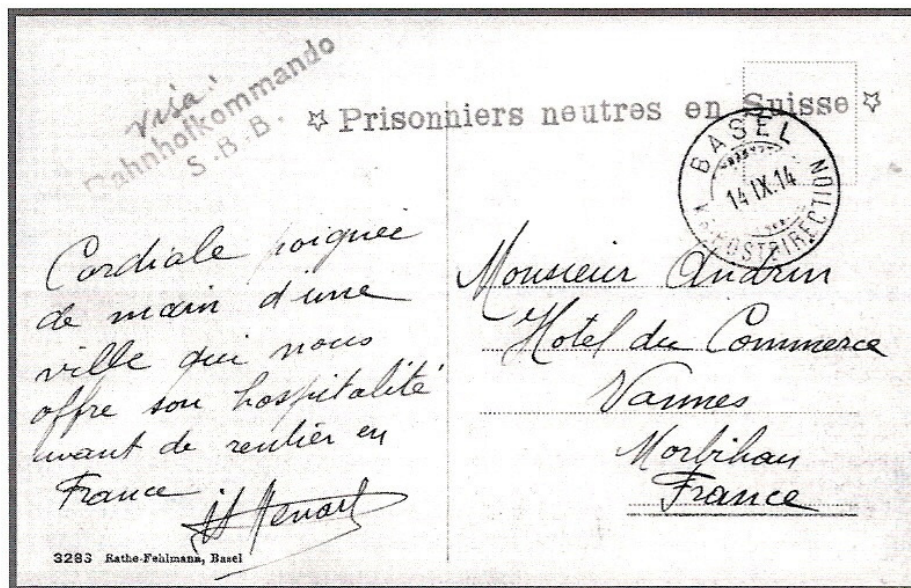 Visa:
Bahnhofkommando
S.B.B.
☆ Prisonniers neutres en Suisse ☆
BASEL
14.IX.14
POSTDIRECTION
Cordiale poignée
de main d'une
ville qui nous
offre son hospitalité
avant de rentrer en
France
Monsieur
Hotel du Commerce
Vannes
Morbihan
France
3283 Rathe-Fehlmann, Basel